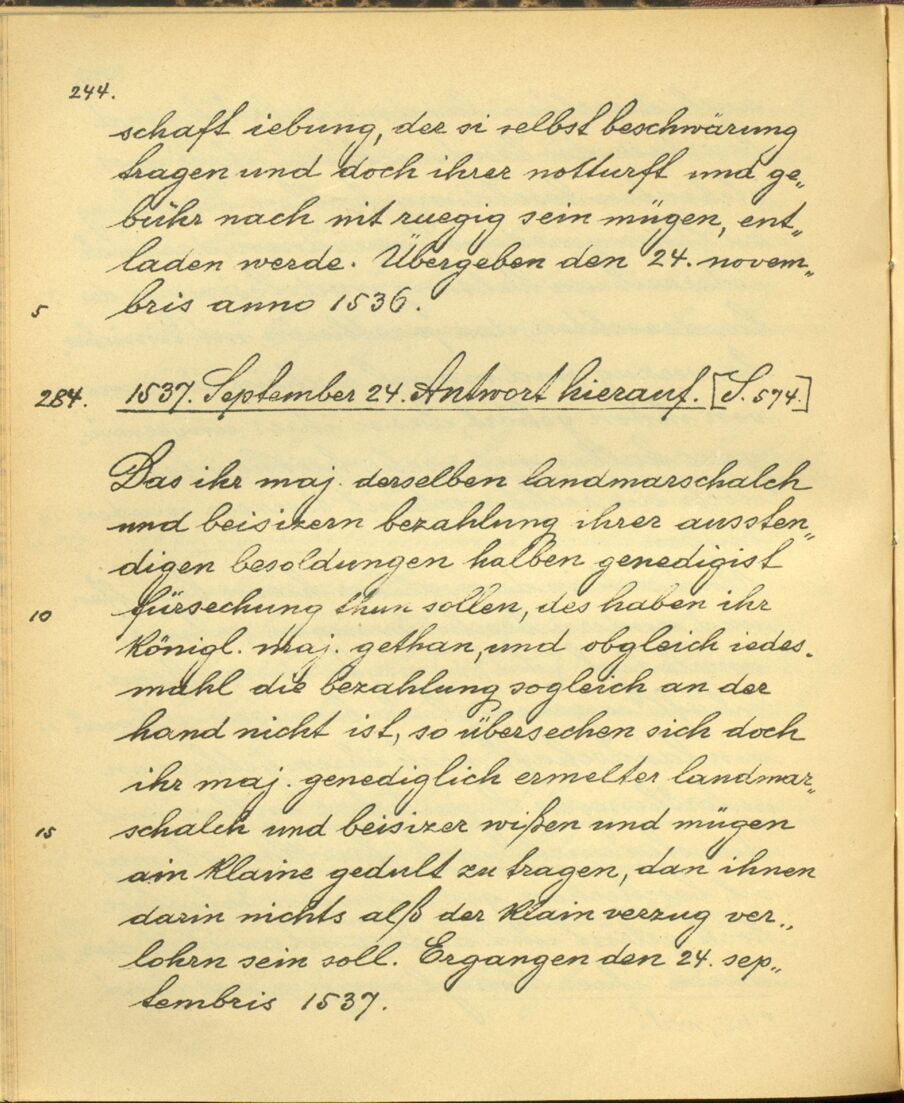 244.
schaft iebung, der si selbst beschwärung
tragen und doch ihrer notturft und ge„
bühr nach nit ruegig sein mügen, ent„
laden werde. Übergeben den 24. novem„
5 bris anno 1536.
284. 1537. September 24. Antwort hierauf. [S. 574.]
Das ihr maj. derselben landmarschalch
und beisizern bezahlung ihrer aussten„
digen besoldungen halben genedigist
10 fürsechung thun sollen, des haben ihr
königl. maj. gethan, und obgleich iedes„
mahl die bezahlung sogleich an der
hand nicht ist, so übersechen sich doch
ihr maj. genediglich ermelter landmar„
15 schalch und beisizer wißen und mügen
ain klaine gedult zu tragen, dan ihnen
darin nichts alß der klain verzug ver„
lohrn sein soll. Ergangen den 24. sep„
tembris 1537.